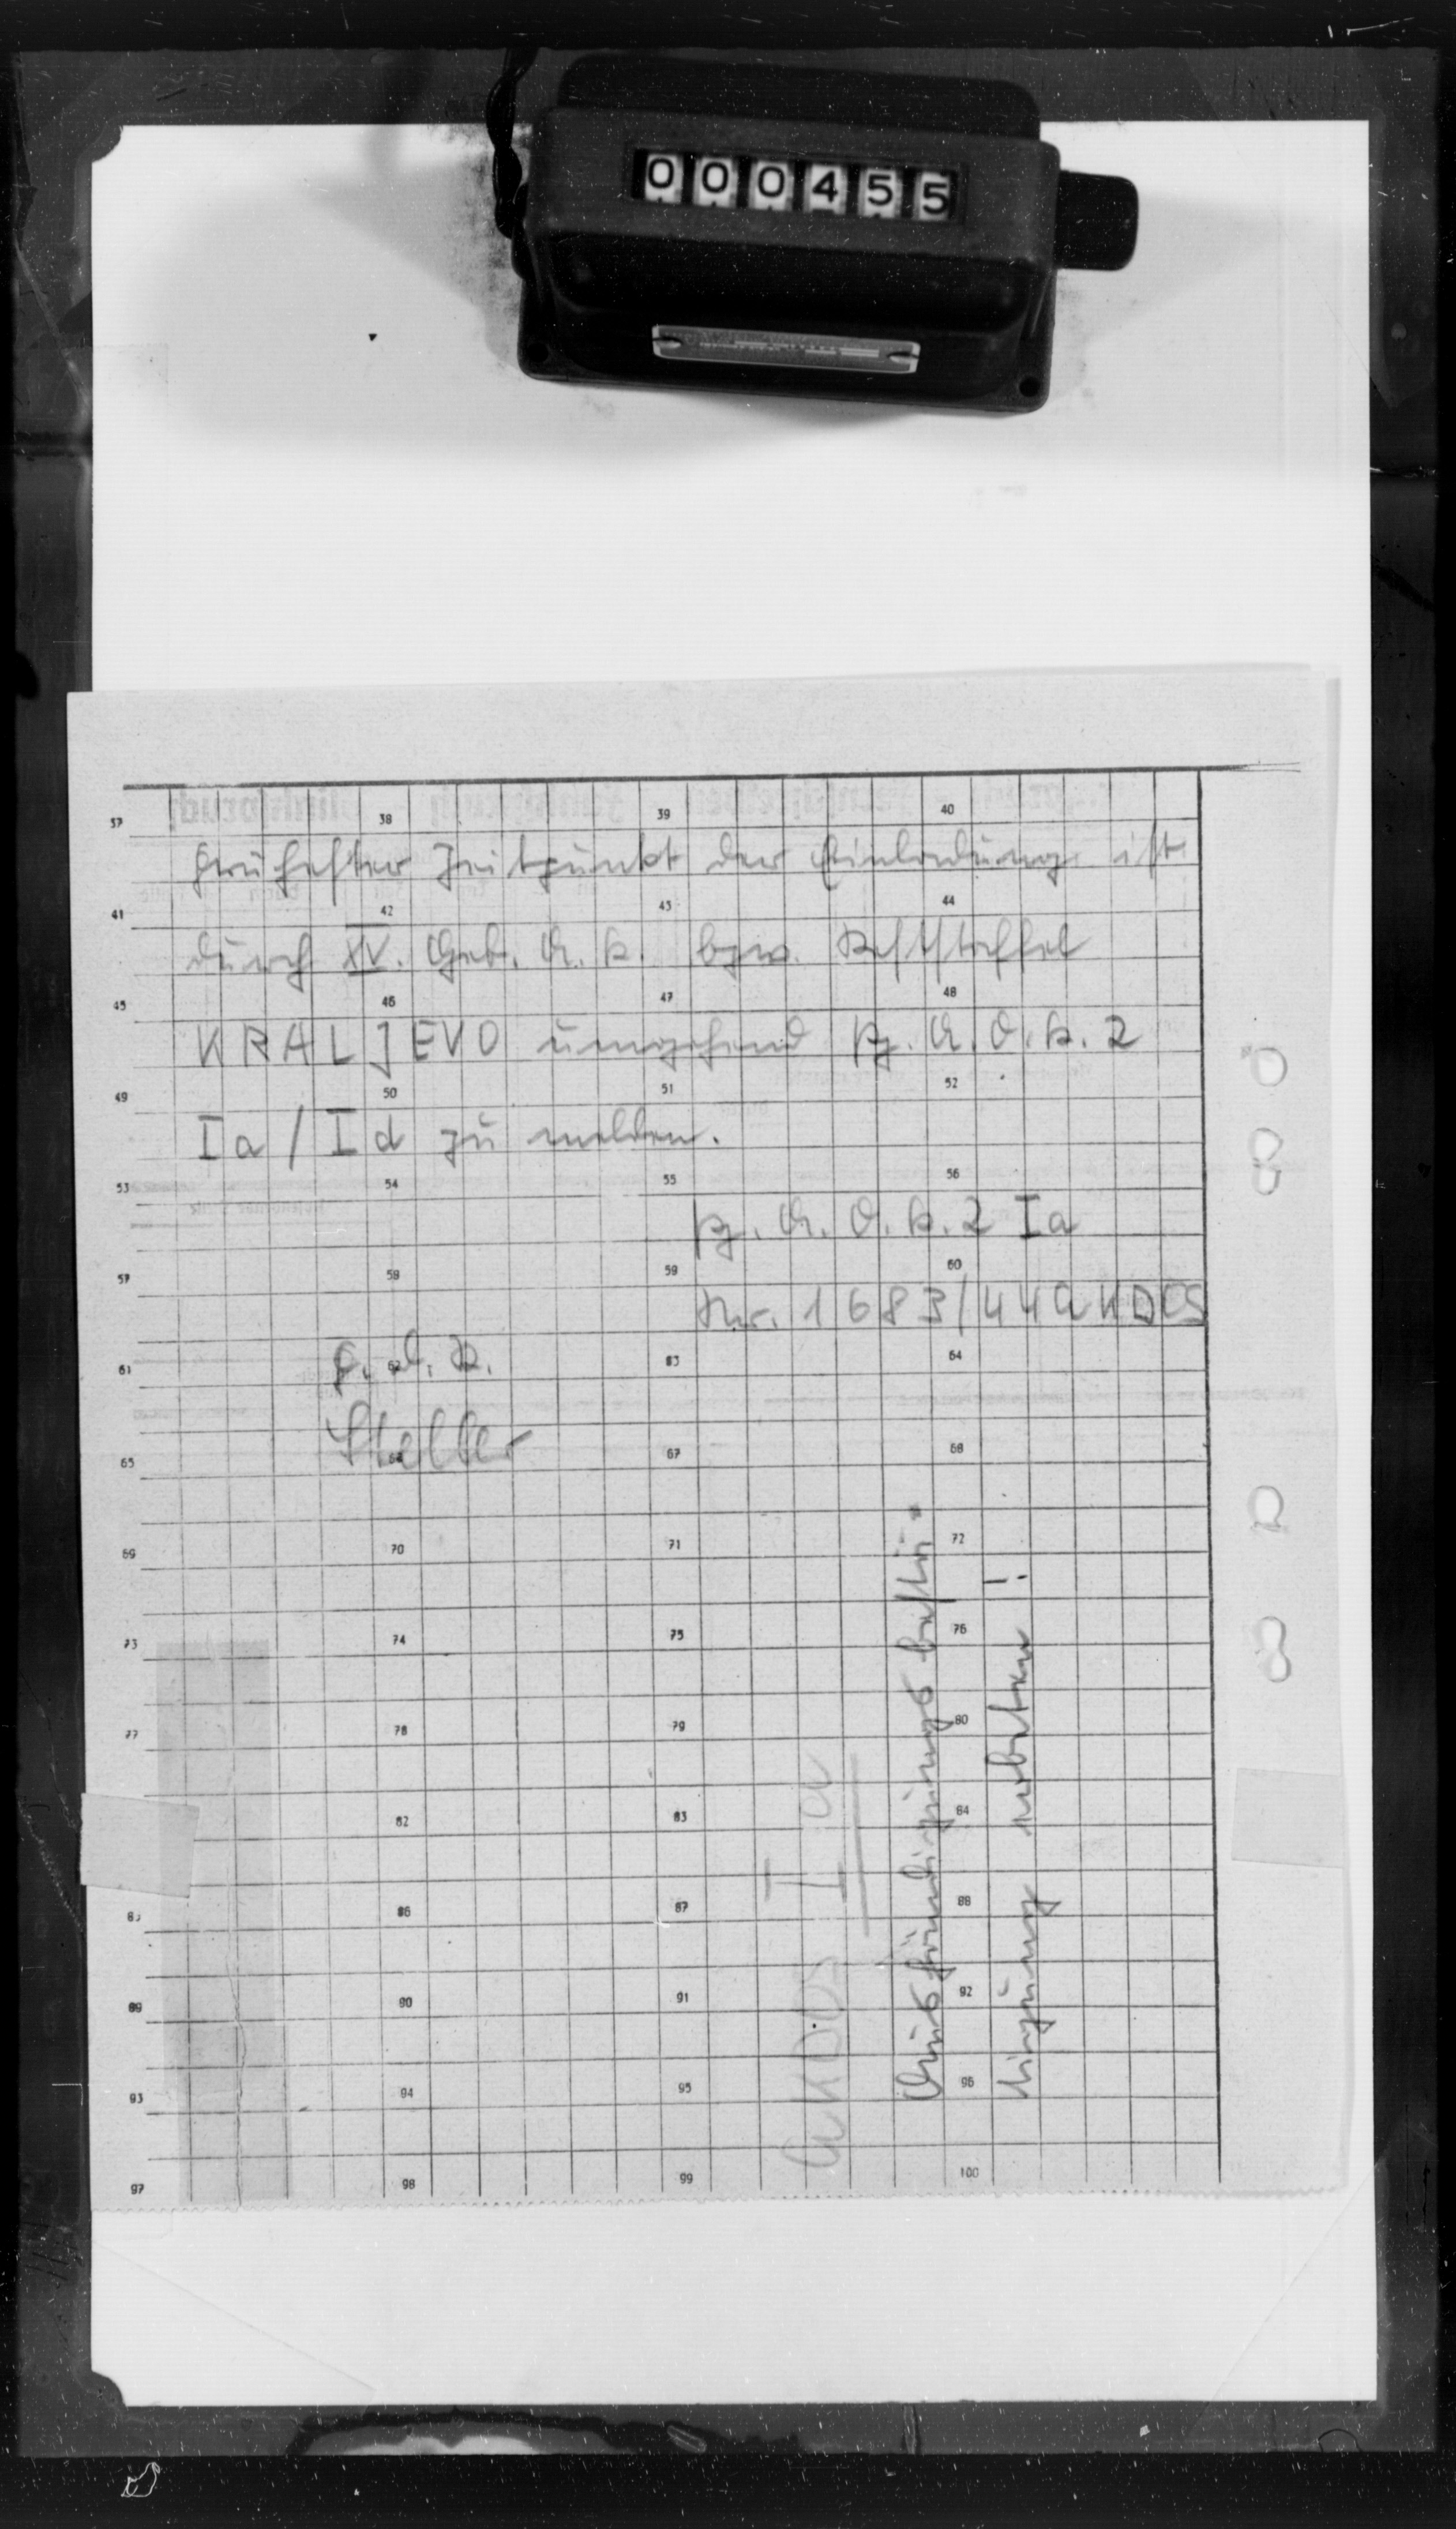 000455
37 38 39 40
Frühester Zeitpunkt der Einladung ist
41 42 43 44
durch XV. Geb. A. K. bzw.
45 46 47 48
KRALJEVO umgehend Pz. A. O. K. 2
49 50 51 52
Ia / Id zu melden.
53 54 55 56
Pz. A. O. K. 2 Ia
57 58 59 60
Nr. 1683/44 GKDOS
61 62 63 64
F. d. R.
65 67 68
69 70 71 72
73 74 75 76
77 78 79 80
82 83 84
86 87 88
89 90 91 92
93 94 95 96
97 98 99 100
GKDOS Ia
Aushändigungsbestä-
tigung erbeten!